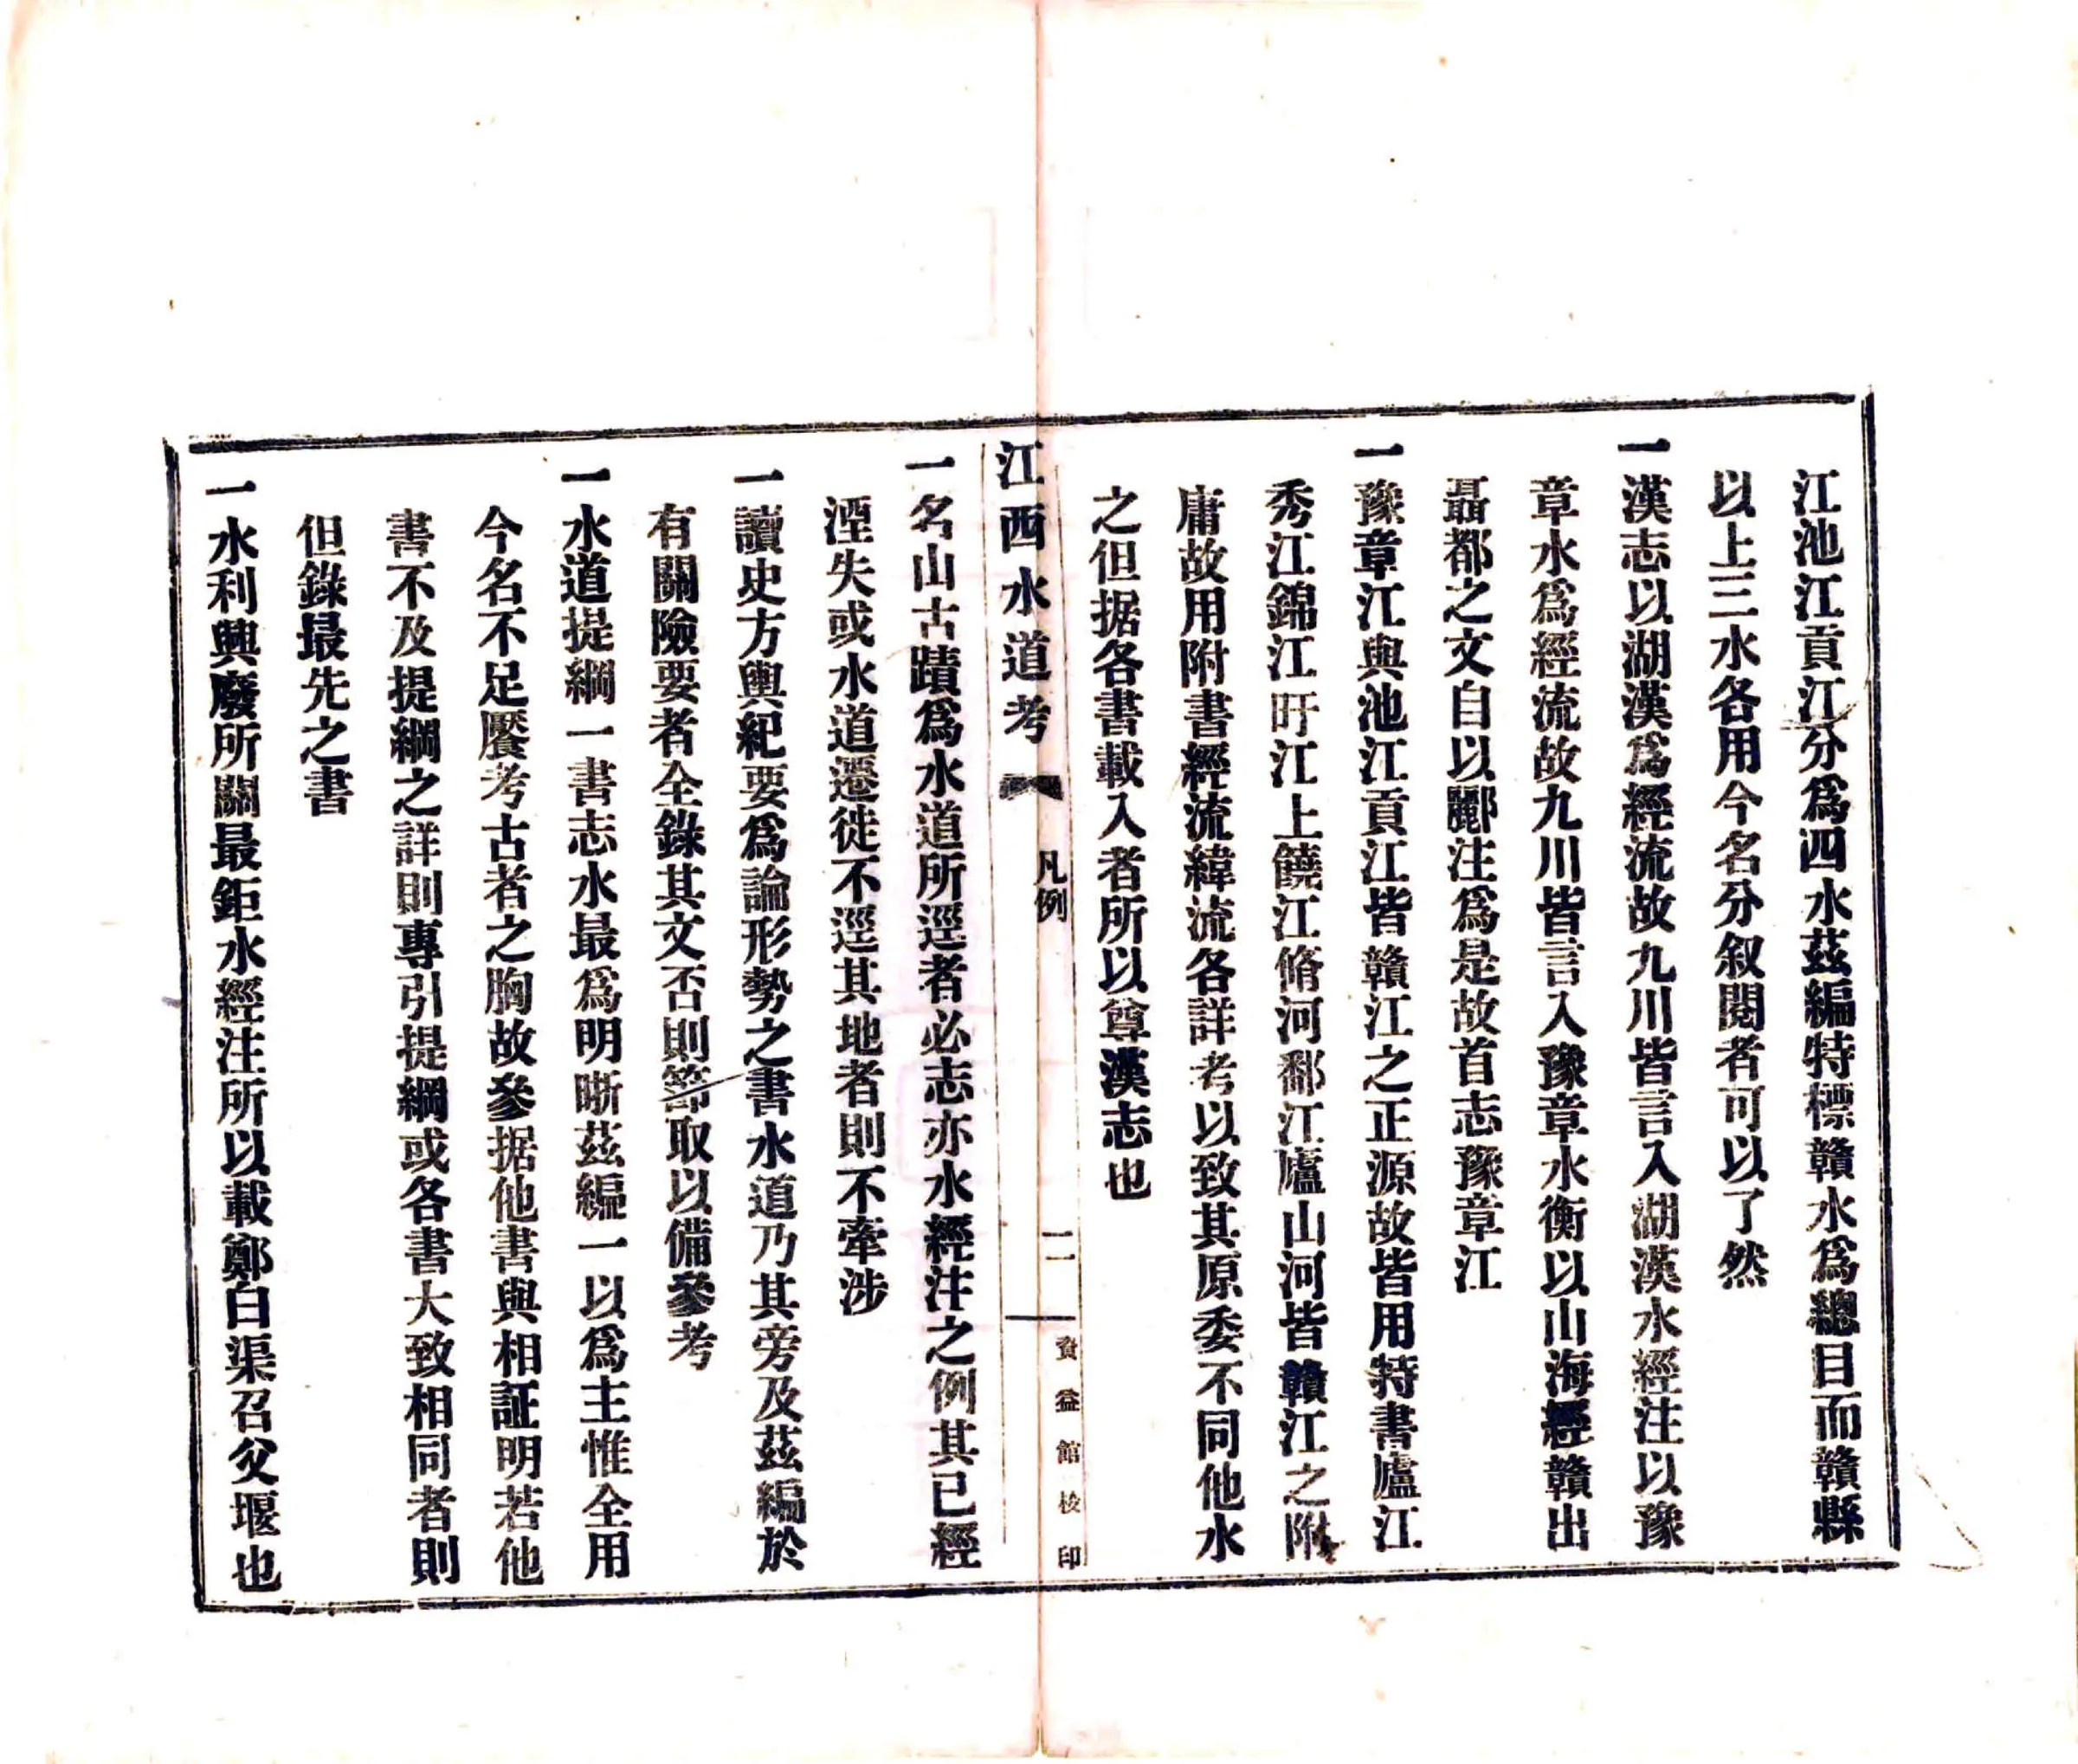 江池江貢江分爲四水茲編特標贛水爲總目而贛縣
以上三水各用今名分叙閱者可以了然
一漢志以湖漢爲經流故九川皆言入湖漢水經注以豫
章水爲經流故九川皆言入豫章水衡以山海經贛出
聶都之文自以酈注爲是故首志豫章江
一豫章江與池江貢江皆贛江之正源故皆用特書廬江
秀江錦江旴江上饒江脩河鄱江廬山河皆贛江之附
庸故用附書經流緯流各詳考以致其原委不同他水
之但据各書載入者所以尊漢志也
江西水道考
凡例
二
資益館校印
一名山古蹟爲水道所逕者必志亦水經注之例其已經
湮失或水道遷徙不逕其地者則不牽涉
一讀史方輿紀要爲論形勢之書水道乃其旁及茲編於
有關險要者全錄其文否則節取以備參考
一水道提綱一書志水最爲明晰茲編一以爲主惟全用
今名不足饜考古者之胸故參据他書與相証明若他
書不及提綱之詳則專引提綱或各書大致相同者則
但錄最先之書
一水利興廢所關最鉅水經注所以載鄭白渠召父堰也